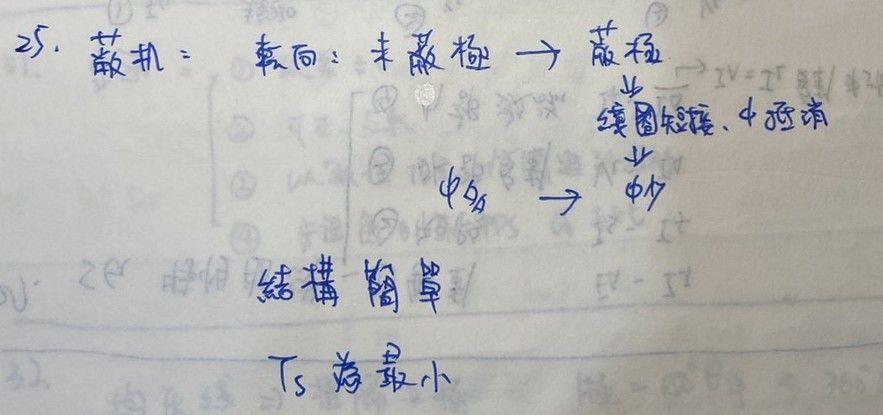 25. 蔽机： 転向：未蔽極 → 蔽極
↓
線圈短接、ф抵消
↓
ф多 → ф少
結構簡單
Ts為最小